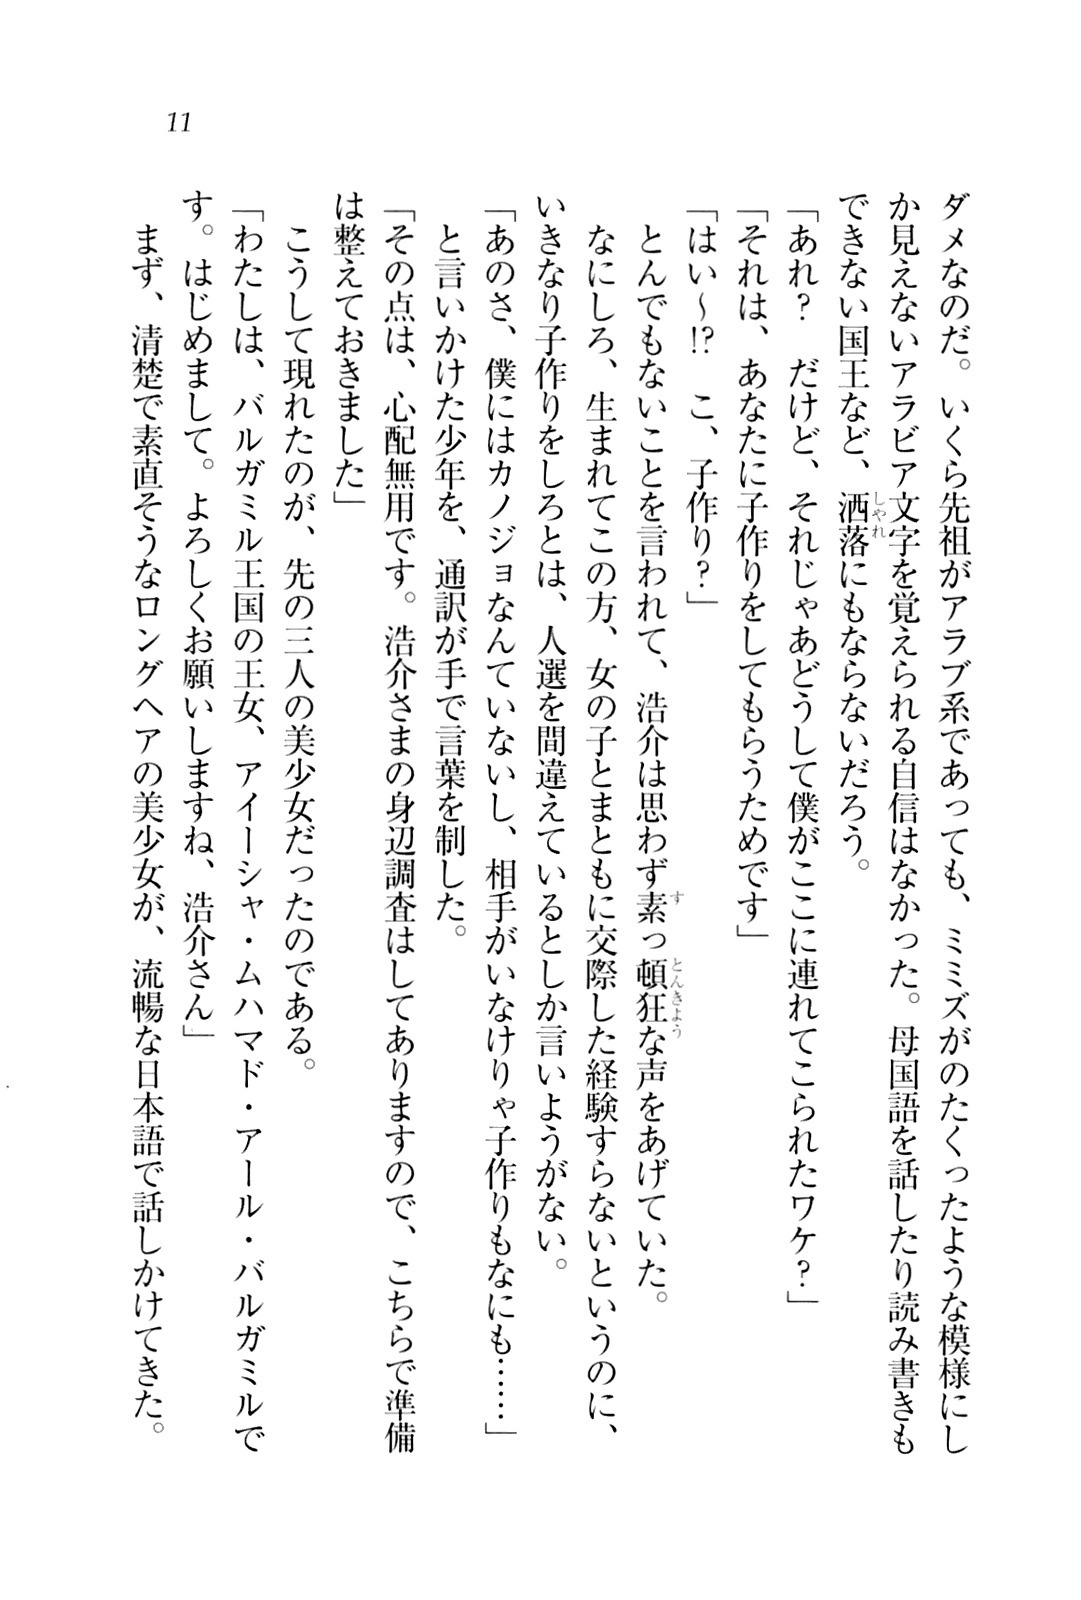 11
ダメなのだ。いくら先祖がアラブ系であっても、ミミズがのたくったような模様にし
か見えないアラビア文字を覚えられる自信はなかった。母国語を話したり読み書きも
できない国王など、洒落にもならないだろう。
「あれ?　だけど、それじゃあどうして僕がここに連れてこられたワケ?」
「それは、あなたに子作りをしてもらうためです」
「はい～!?　こ、子作り?」
　とんでもないことを言われて、浩介は思わず素っ頓狂な声をあげていた。
　なにしろ、生まれてこの方、女の子とまともに交際した経験すらないというのに、
いきなり子作りをしろとは、人選を間違えているとしか言いようがない。
「あのさ、僕にはカノジョなんていないし、相手がいなけりゃ子作りもなにも……」
　と言いかけた少年を、通訳が手で言葉を制した。
「その点は、心配無用です。浩介さまの身辺調査はしてありますので、こちらで準備
は整えておきました」
　こうして現れたのが、先の三人の美少女だったのである。
「わたしは、バルガミル王国の王女、アイーシャ・ムハマド・アール・バルガミルで
す。はじめまして。よろしくお願いしますね、浩介さん」
　まず、清楚で素直そうなロングヘアの美少女が、流暢な日本語で話しかけてきた。